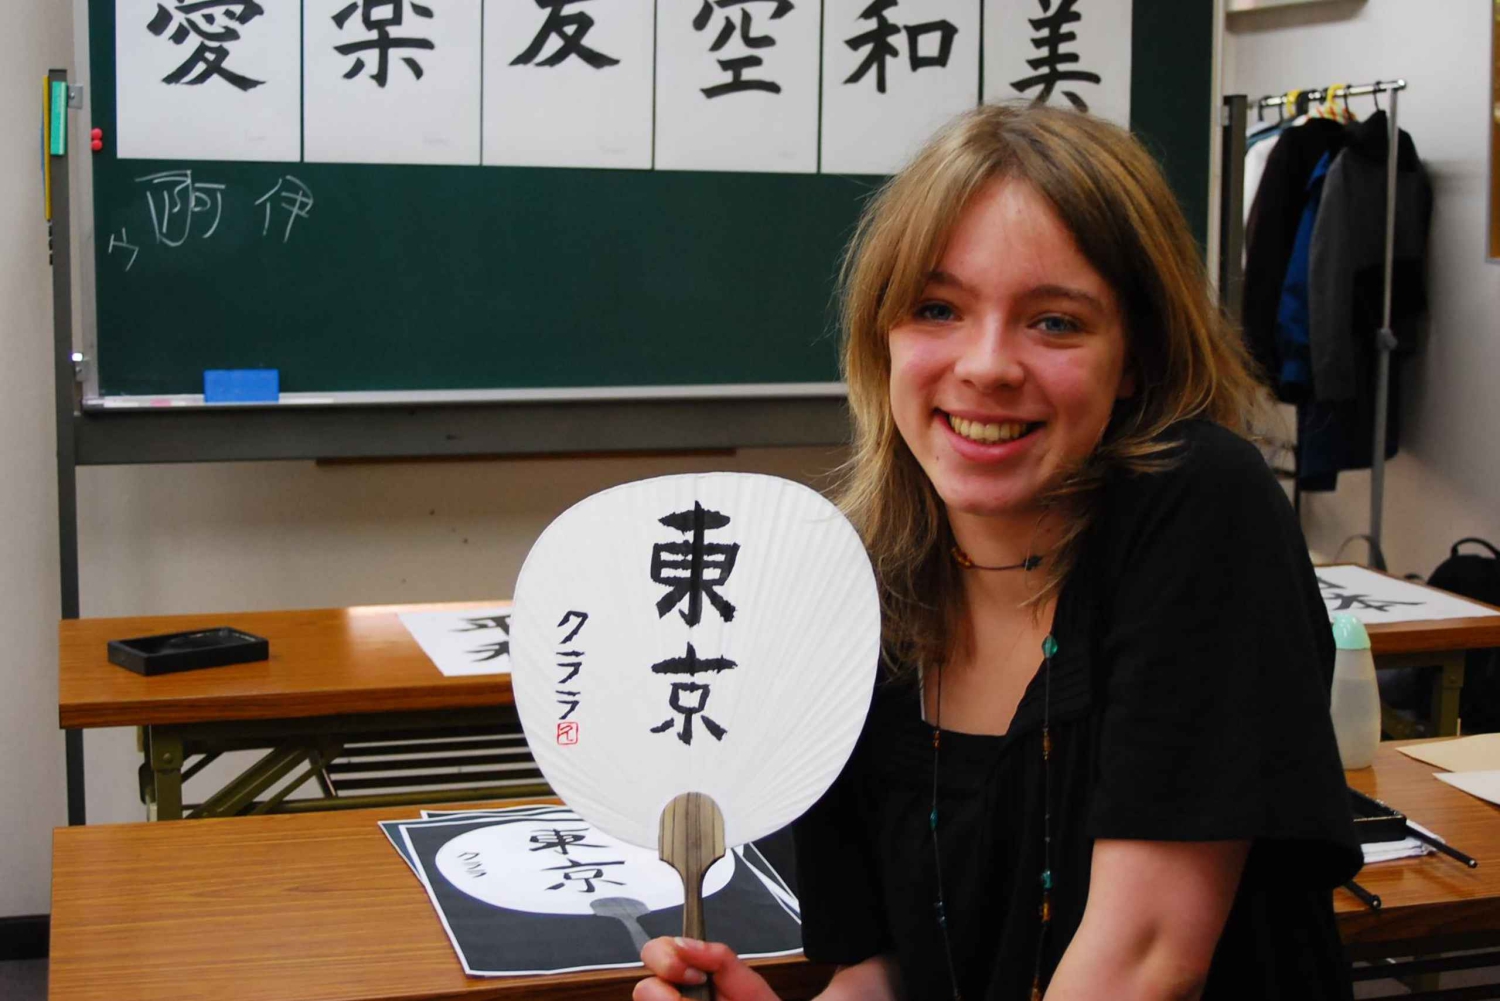 愛
楽
友
空
和
美
阿 伊
東京
クララ
東京
クララ